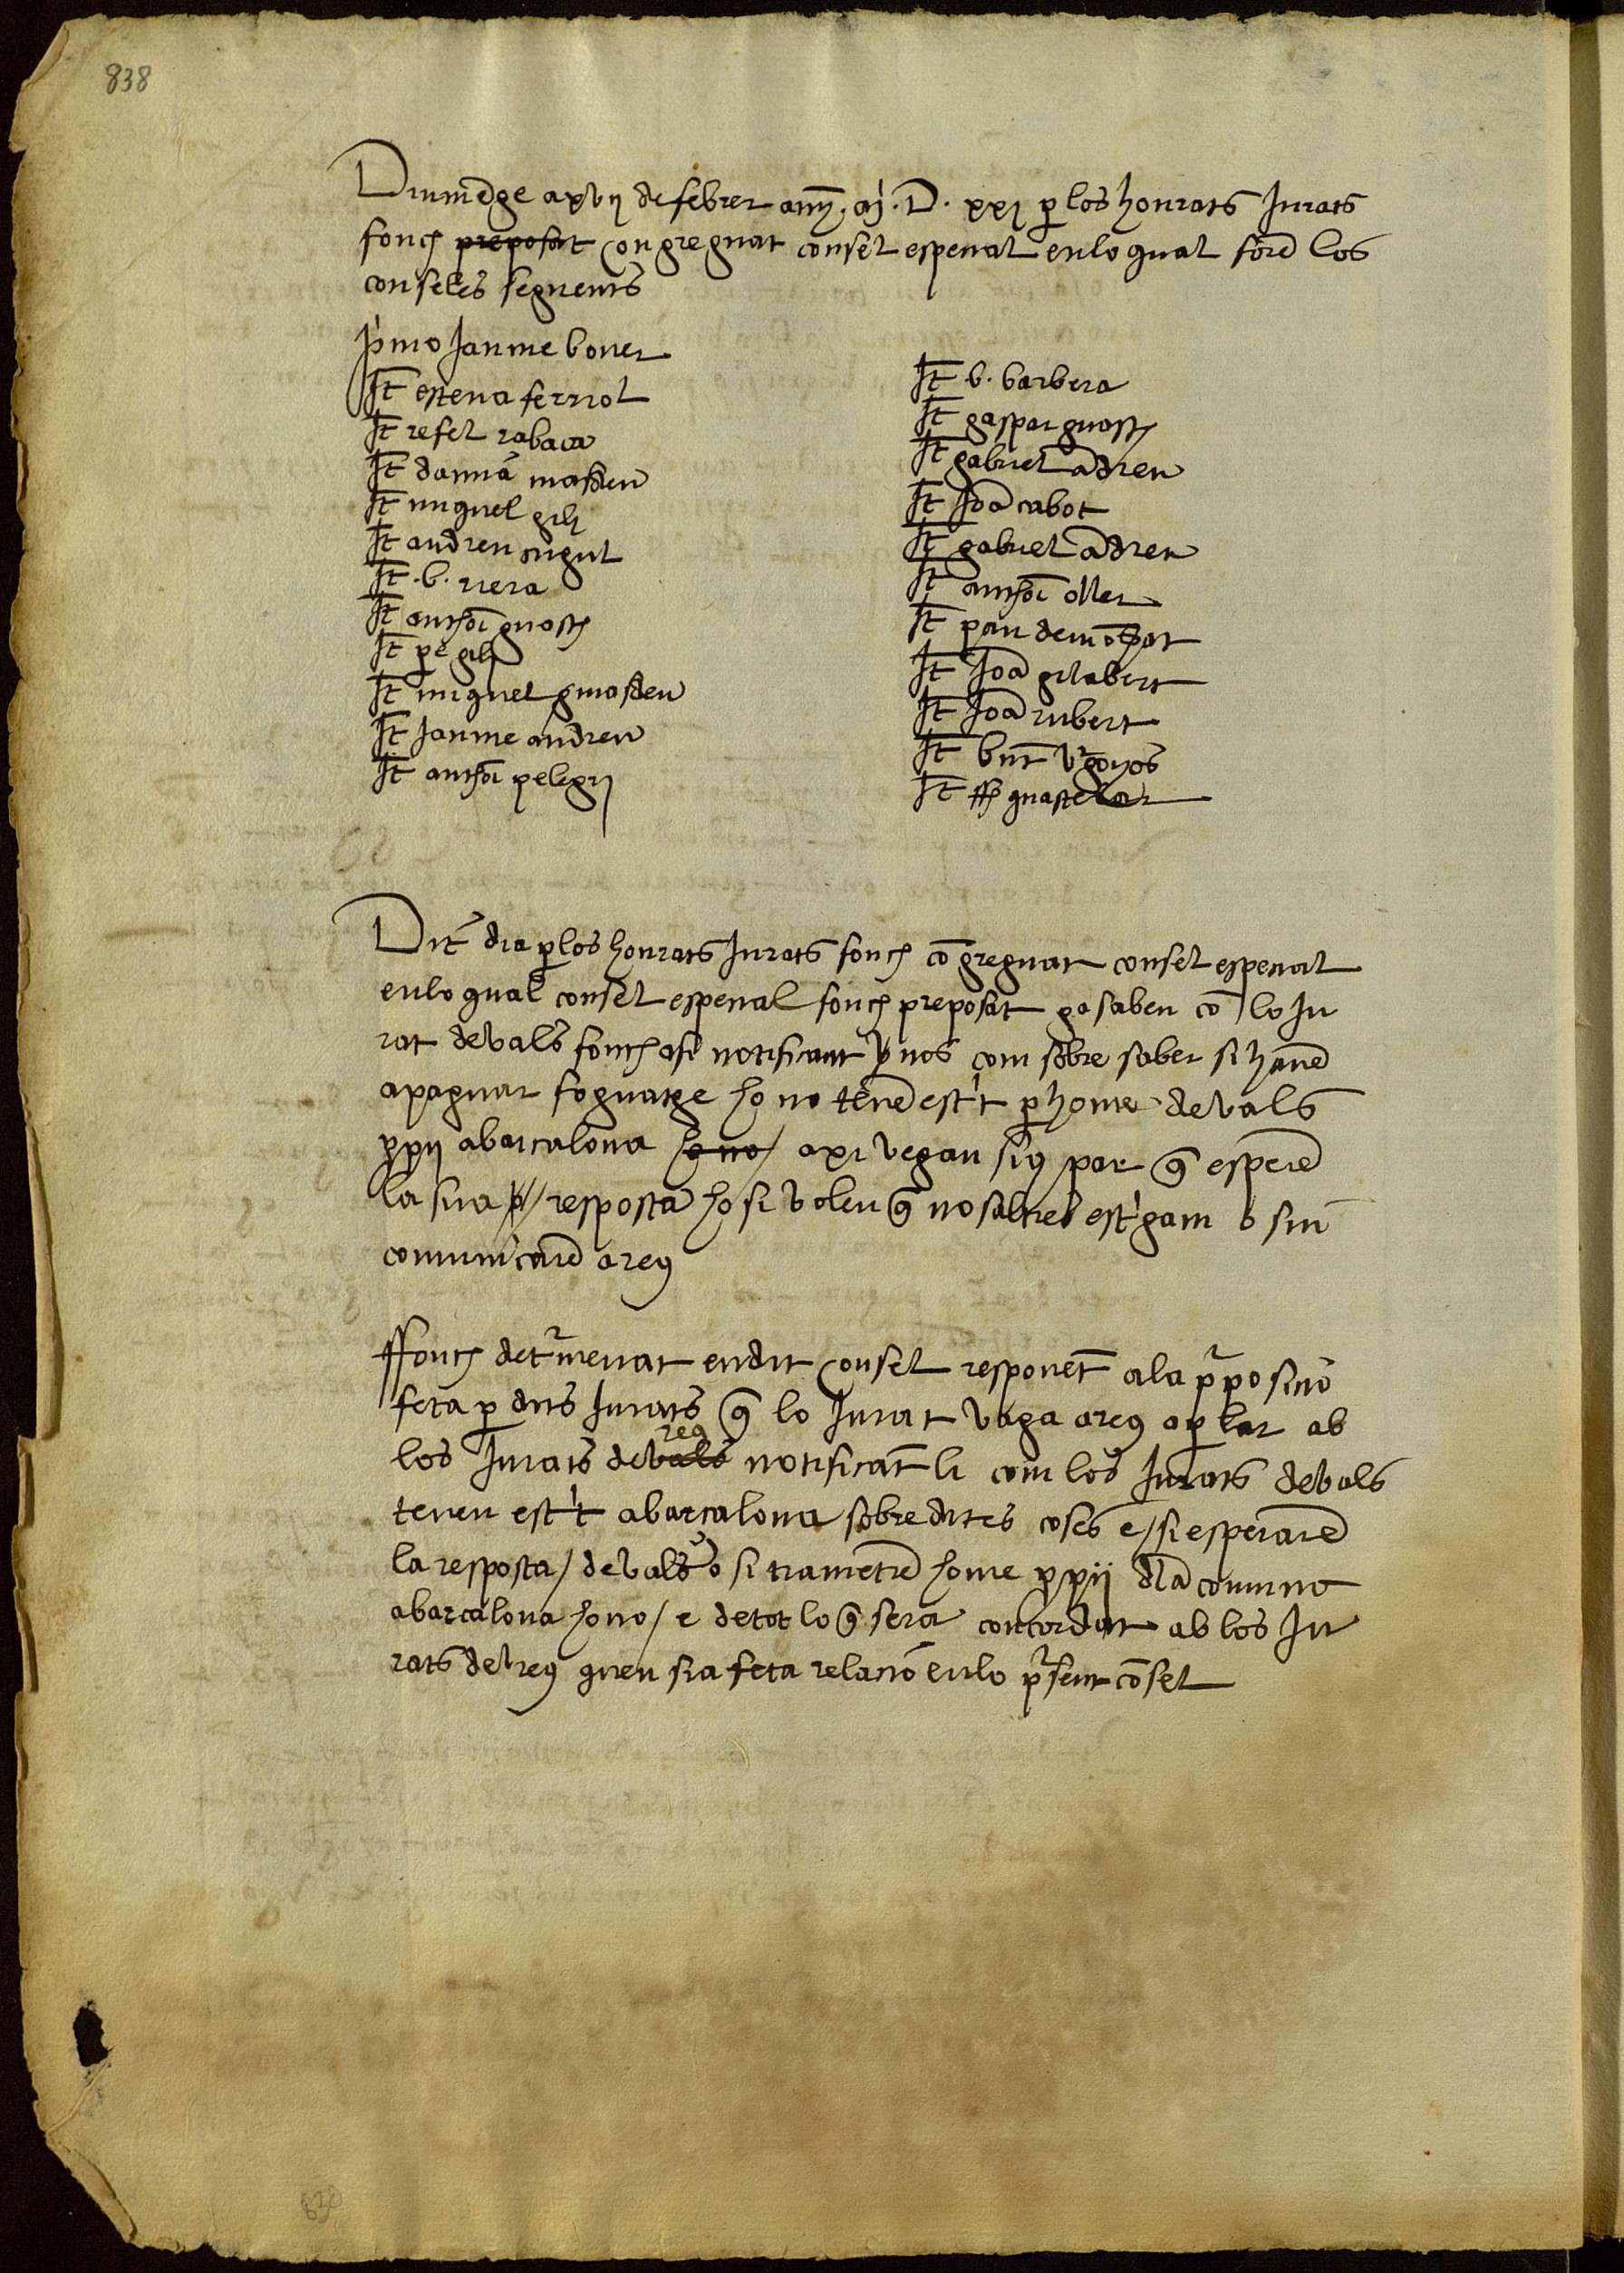 838
Diume͠ge a xvij de febrer any .mj. D. xxj p̱ los honrats Jurats
fonch preposat congreguat consel especial en lo qual fore͠ los
conseles seguents
P̱mo Jaume bover
It̄ esteva ferriol
It̄ refel rabaca
It̄ damia͠ masdeu
It̄ miguel gili
It̄ andreu cugul
It̄ .b. riera
It̄ anthoi͠ guasch
It̄ pe͠ gili
It̄ miguel gmasdeu
It̄ Jaume andreu
It̄ anthoi͠ pelegri
It̄ b. barbera
It̄ gaspar guasch
It̄ gabriel a͠dreu
It̄ Joa͠ cabot
It̄ gabriel a͠dreu
It̄ anthoi͠ oller
It̄ pau de mo͠tpat
It̄ Joa͠ gilabert
It̄ Joa͠ rubert
It̄ bnt̄
It̄ ff guastelar
Dit dia p̱ los honrats Jurats fonch co͠greguat consel especial
en lo qual consel especial fonch preposat ga saben co͠ lo Ju
rat de vals fonch asi notificant nos com sobre saber si have͠
a paguar foguatge ho no tene͠ est't p̱ home de vals
p̱pi a barcalona ho no / axi vegan sius par q̃ espere͠
la sua / resposta ho si volen q̃ nosaltres est'gam o sin
comunicare͠ a reus
Ffonch det'menat en dit consel responet͠ a la p'posicio͠
feta p̱ dits Jurats q̃ lo Jurat vaga a reus a p̱lar ab
los Jurats de vals reus notificat͠li com los Jurats de vals
tenen est't a barcalona sobre dites coses e / si esperare͠
la resposta / de vals o si trametre͠ home p̱pi dla͠ comuna
a barcalona ho no / e de tot lo q̃ sera concordat ab los Ju
rats de reus quen sia feta relacio͠ en lo p'sent co͠sel
838